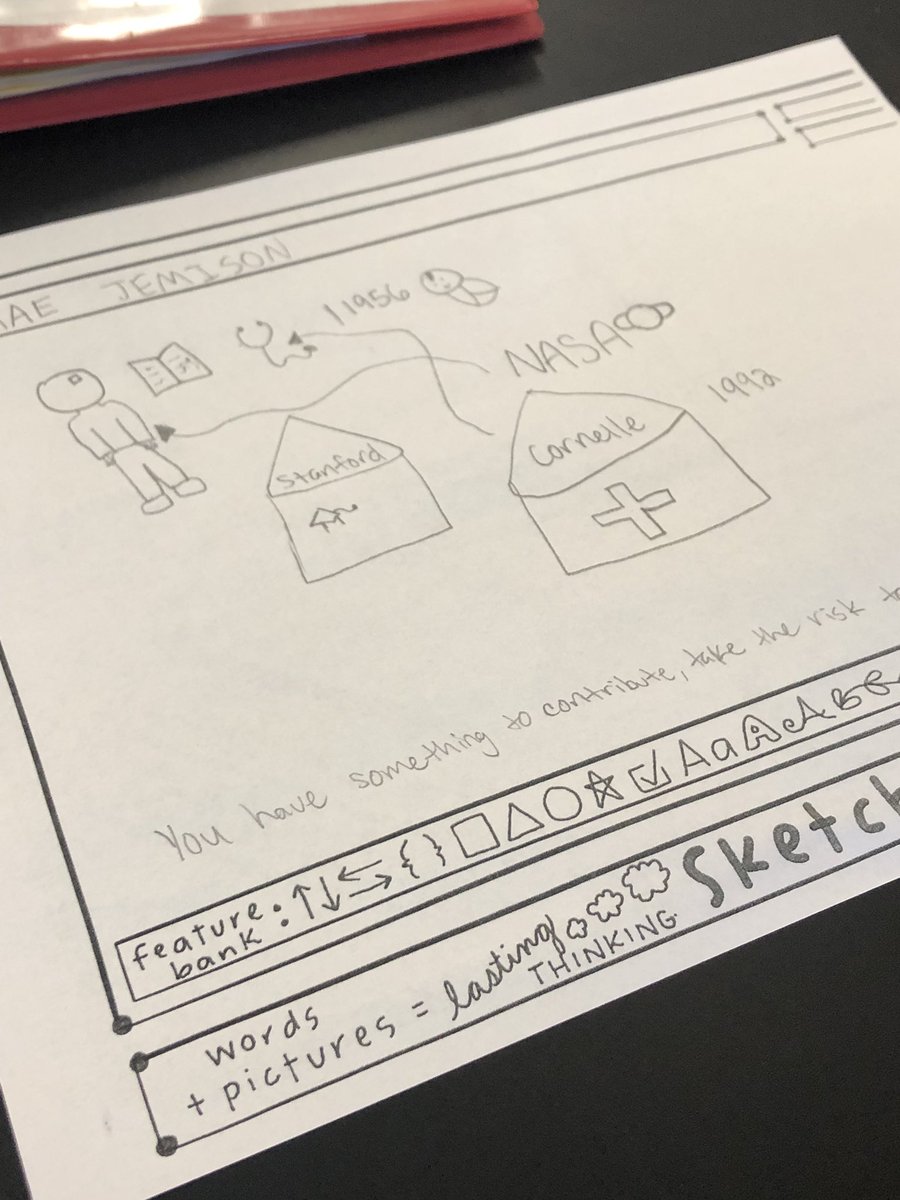 MAE JEMISON
11956
NASA
1992
Stanford
Cornelle
You have something to contribute, take the risk to
feature bank: ↑↓ { } Aa
words
+ pictures = lasting THINKING Sketch